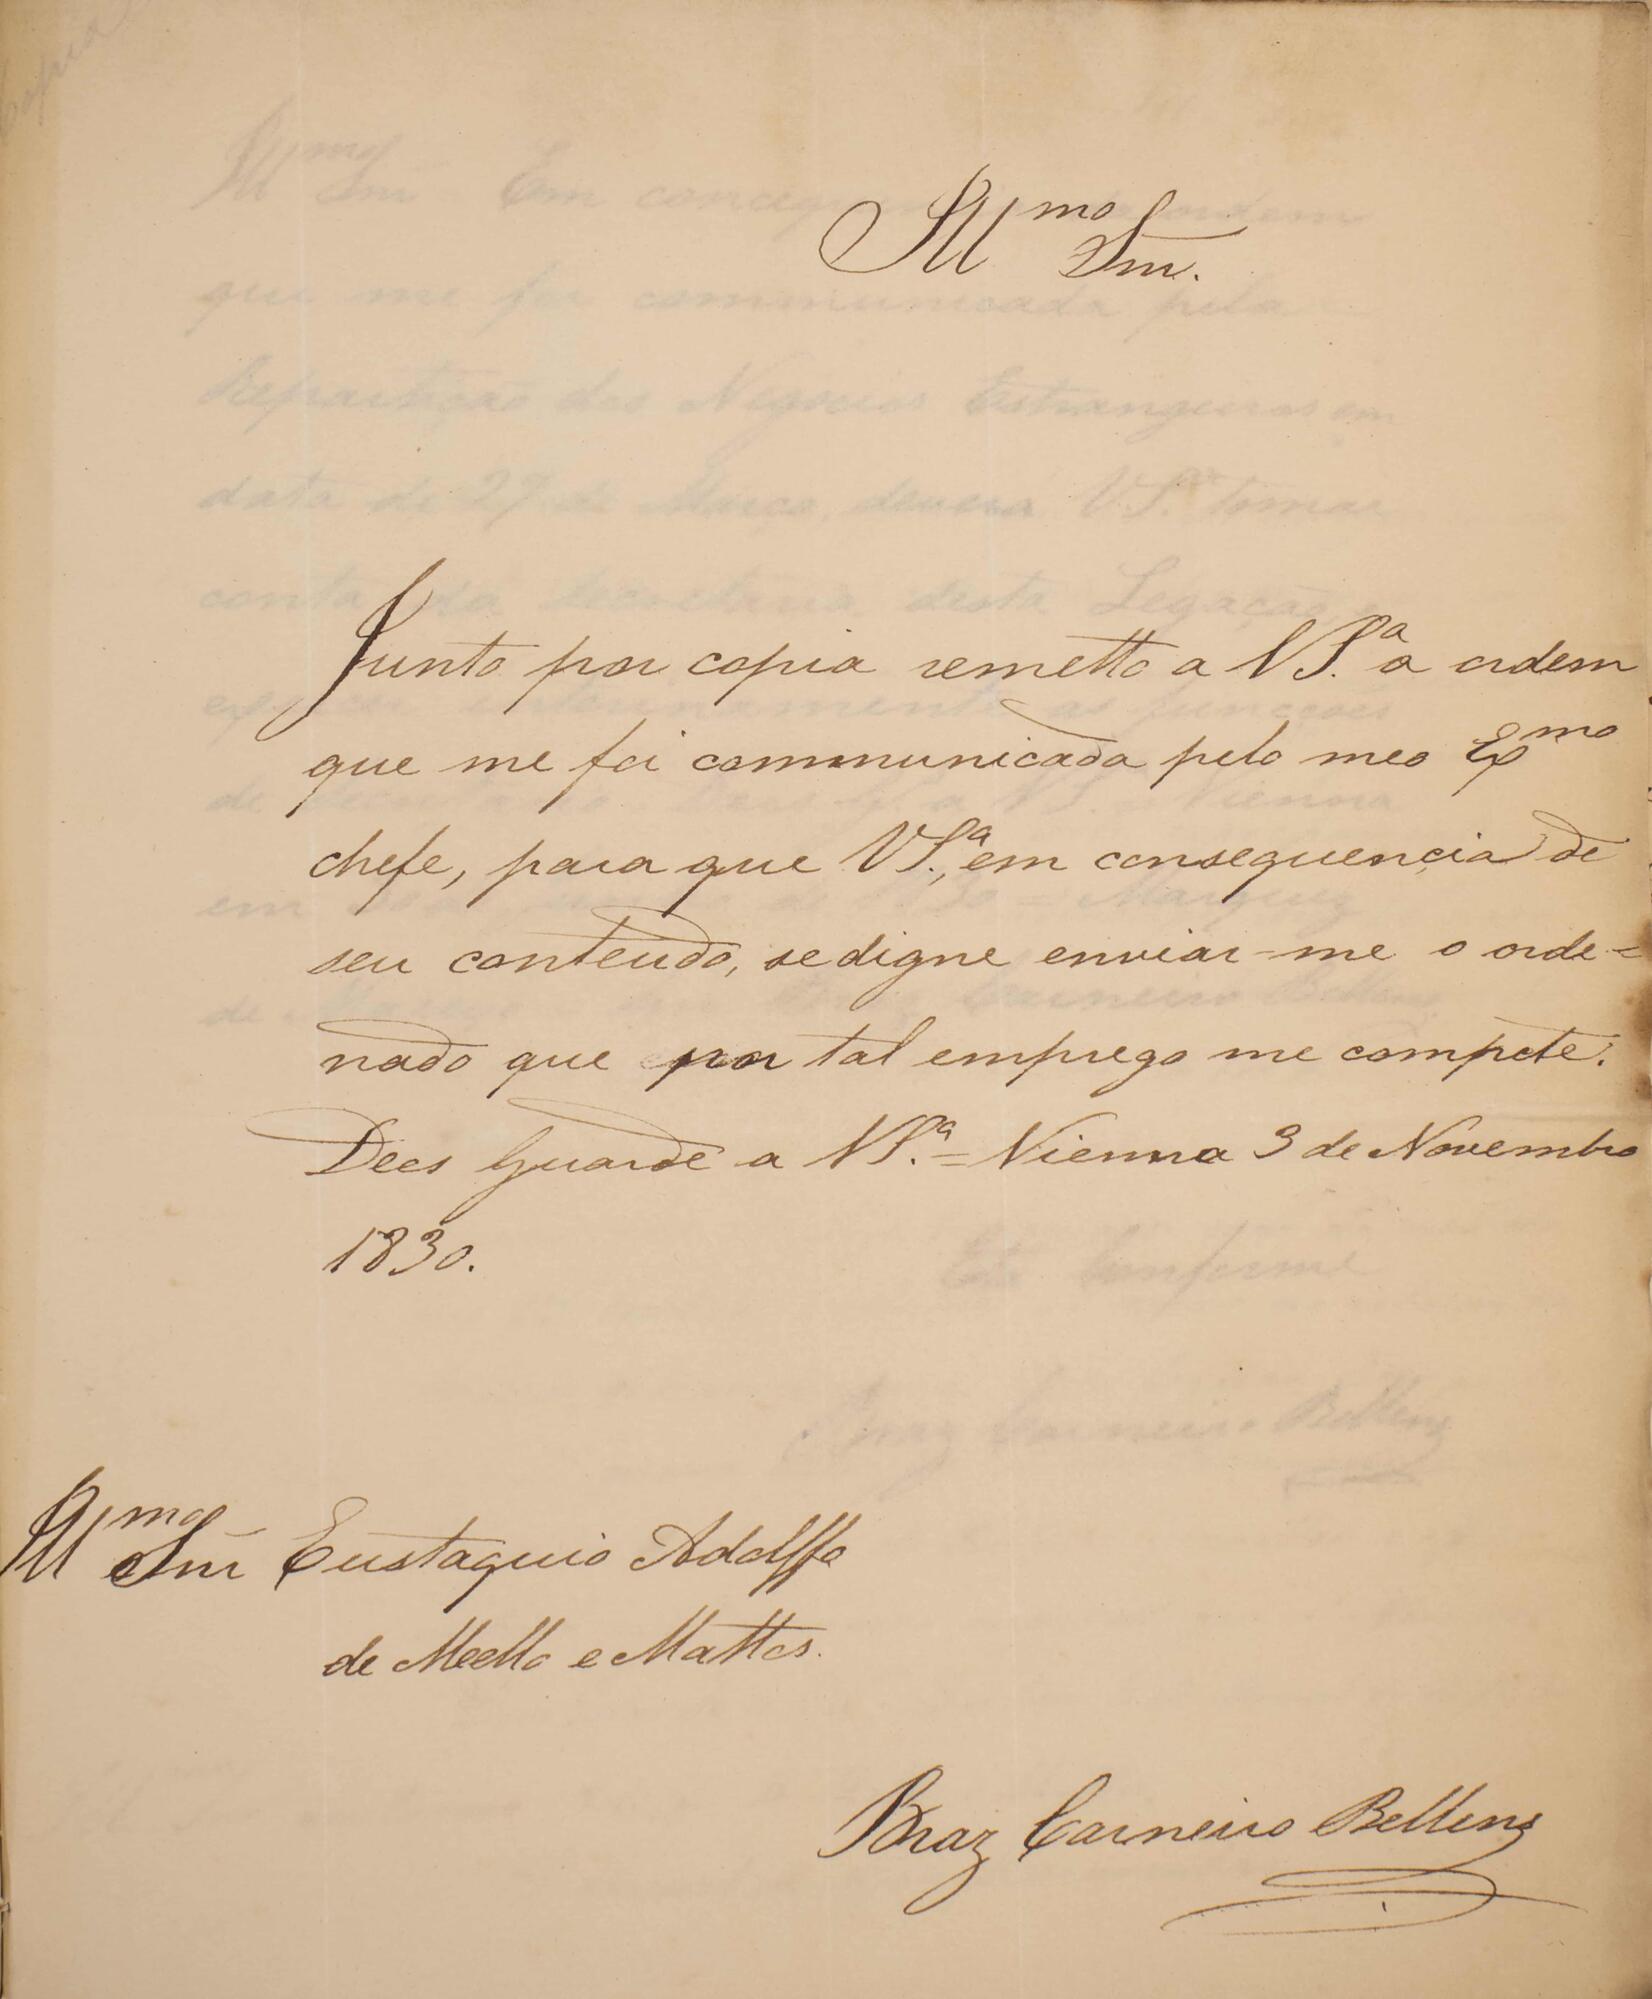 Illmo Snr.
Junto por copia remetto a VS.a a ordem
que me foi communicada pelo meo Exmo
chefe, para que VS.a, em consequencia de
seu conteudo, se digne enviar-me o orde=
nado que por tal emprego me compete.
Deos Guarde a VS.a = Vienna 3 de Novembro
1830.
Illmo Snr Eustaquio Adolffo
de Mello e Mattos.
Braz Carneiro Bellens